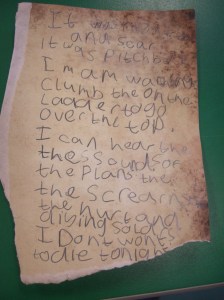 It was
and soar
it was pitch bl
I'm am waiting
clumb the on the
Ladder to go
over the top.
I can hear the
the sounds of
the plans the
the screams
the hurt and
diving solders
I Dont wont
to die tonight